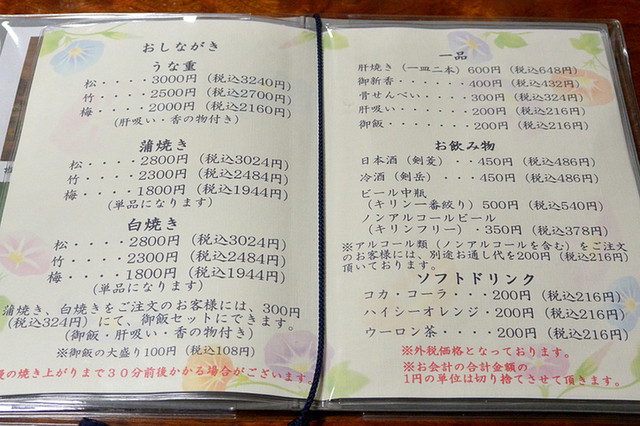 おしながき
うな重
松・・・・3000円（税込3240円）
竹・・・・2500円（税込2700円）
梅・・・・2000円（税込2160円）
（肝吸い・香の物付き）
蒲焼き
松・・・・2800円（税込3024円）
竹・・・・2300円（税込2484円）
梅・・・・1800円（税込1944円）
（単品になります）
白焼き
松・・・・2800円（税込3024円）
竹・・・・2300円（税込2484円）
梅・・・・1800円（税込1944円）
（単品になります）
蒲焼き、白焼きをご注文のお客様には、300円
（税込324円）にて、御飯セットにできます。
（御飯・肝吸い・香の物付き）
※御飯の大盛り100円（税込108円）
の焼き上がりまで３０分前後かかる場合がございます
一品
肝焼き（一皿二本）600円（税込648円）
御新香・・・・・・400円（税込432円）
骨せんべい・・・・300円（税込324円）
肝吸い・・・・・・200円（税込216円）
御飯・・・・・・・200円（税込216円）
お飲み物
日本酒（剣菱）・・450円（税込486円）
冷酒（剣岳）・・・450円（税込486円）
ビール中瓶
（キリン一番絞り）500円（税込540円）
ノンアルコールビール
（キリンフリー）・350円（税込378円）
※アルコール類（ノンアルコールを含む）をご注文
のお客様には、別途お通し代を200円（税込216円）
頂いております。
ソフトドリンク
コカ・コーラ・・・200円（税込216円）
ハイシーオレンジ・200円（税込216円）
ウーロン茶・・・・200円（税込216円）
※外税価格となっております。
※お会計の合計金額の
1円の単位は切り捨てさせて頂きます。